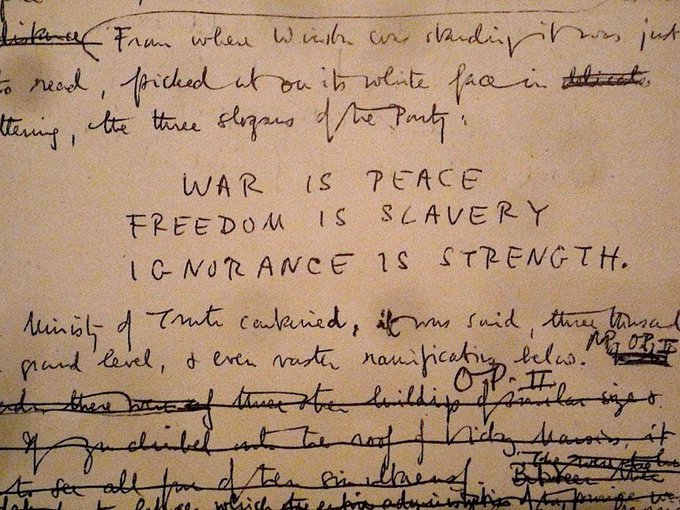 distance From where Winston was standing it was just
to read, picked out on its white face in delicate
ttering, the three slogans of the Party:
WAR IS PEACE
FREEDOM IS SLAVERY
IGNORANCE IS STRENGTH.
Ministry of Truth contained, it was said, three thousand
ground level, & even vaster ramifications below.
O.P. II
there were three other buildings of similar size &
If you climbed onto the roof of Victory Mansions, it
to see all four of them simultaneously. Between
which the entire administration of